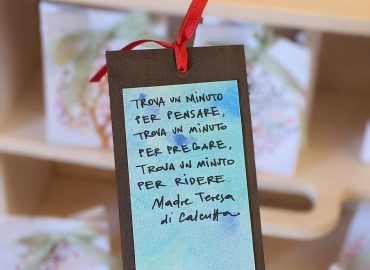 TROVA UN MINUTO
PER PENSARE,
TROVA UN MINUTO
PER PREGARE,
TROVA UN MINUTO
PER RIDERE
Madre Teresa
di Calcutta